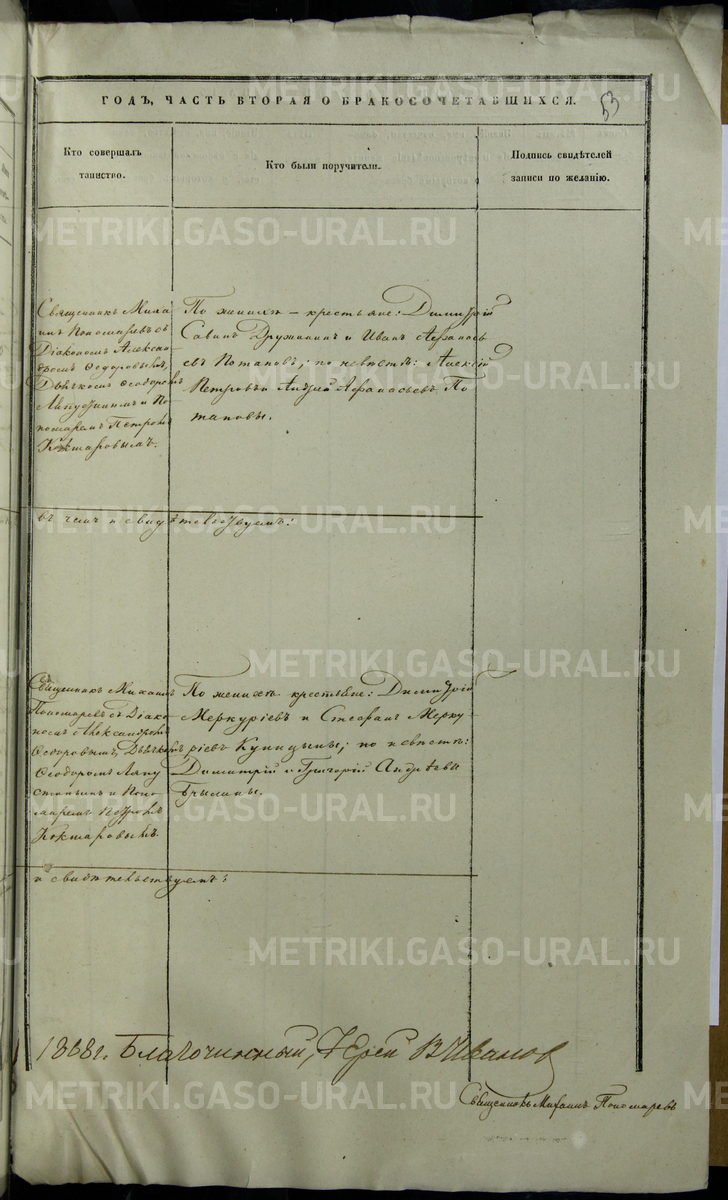 ГОДЪ, ЧАСТЬ ВТОРАЯ О БРАКОСОЧЕТАВШИХСЯ.
53
Кто совершалъ
таинство.
Кто были поручители.
Подпись свидѣтелей
записи по желанію.
Священникъ Миха
илъ Пономаревъ съ
Діакономъ Алексан
дромъ Ѳедоровымъ,
Дьячкомъ Ѳеодоромъ
Ляпустинымъ и По
номаремъ Петромъ
Кокшаровымъ.
По женихѣ – крестьяне: Димитрій
Савинъ Дружининъ и Иванъ Аѳанось
евъ Потаповъ; по невѣстѣ: Алексій
Петровъ и Андрей Аѳанасьевъ По
таповы.
въ чемъ и свидѣтельствуемъ:
Священникъ Михаилъ
Пономаревъ съ Діако
номъ Александромъ
Ѳедоровымъ, Дьячкомъ
Ѳеодоромъ Ляпу
стинымъ и Поно
маремъ Петромъ
Кокшаровымъ.
По женихѣ крестьяне: Димитрій
Меркуріевъ и Стефанъ Мерку
ріевъ; по невѣстѣ:
Димитрій и Григорій Андрѣевы
Брылины.
и свидѣтельствуемъ:
1868 г. Благочинный, Іерей В Ивановъ
Священникъ Михаилъ Пономаревъ
METRIKI.GASO-URAL.RU